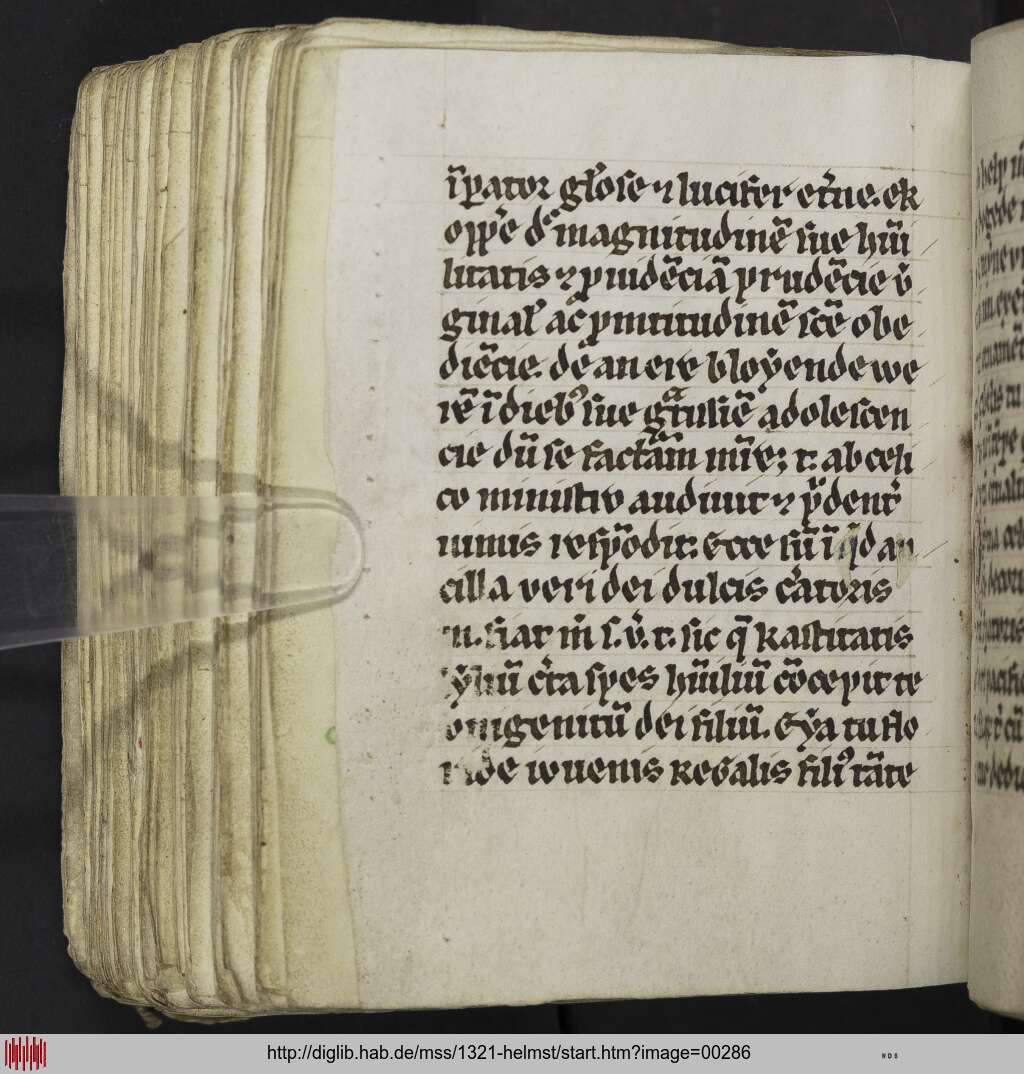 īꝑator gło̅se ⁊ lucifer et̄ne. ek
oppē d' magnitudinē sue hūi
litatis ⁊ ꝓuidēciā prudēcie v̄
ginal' ac̄ ꝓmtitudinē scē obe
diēcie. dē an ere bloẏende we
rē ī dieb9 sue gͣtusiē adolescen
cie dū se factā mr̄ē; t: ab celi
co ministro audiuit ⁊ pͮdent'
nimis respōdit: Ecce sū ī qͥd an
cilla veri dei dulcis c̄atoris
fiat m̄ s. v̄. t. sic q̄ kastitatis
c̄ta spes hūiliū cōcepit te
vnigenitū dei filiū. Eẏa tu flo
ride iuuenis regalis fili9 tāte
http://diglib.hab.de/mss/1321-helmst/start.htm?image=00286